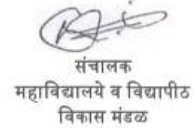 संचालक
महाविद्यालये व विद्यापीठ
विकास मंडळ